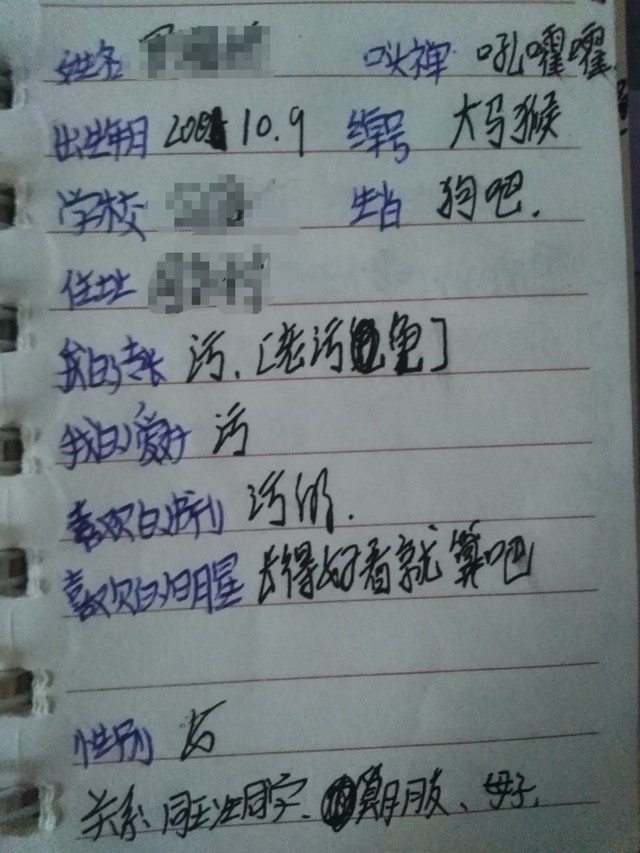 姓名 口头禅 吼嚯嚯
出生年月 2001 10.9 编号 大马猴
学校 生肖 狗吧.
住址
我的专长 污.[老污龟]
我的爱好 污
喜欢的类别 污的.
喜欢的明星 长得好看就算吧
性别 女
关系 同班同学、朋友、母子